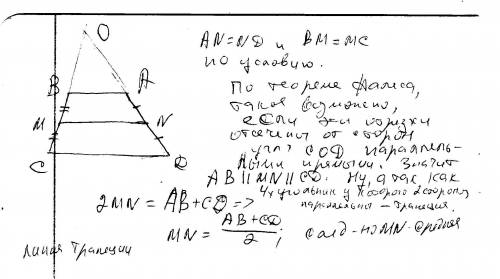 O
AN=ND и BM=MC
по условию.
По теореме Фалеса,
такое возможно,
если эти отрезки
отсечены от сторон
угла COD параллель-
ными прямыми. Значит
AB||MN||CD. Ну, а так как
4х угольник у которого 2 стороны
параллельны - трапеция.
B
A
M
N
C
D
2MN = AB+CD =>
MN = AB+CD / 2 ; след-но MN - средняя
линия трапеции